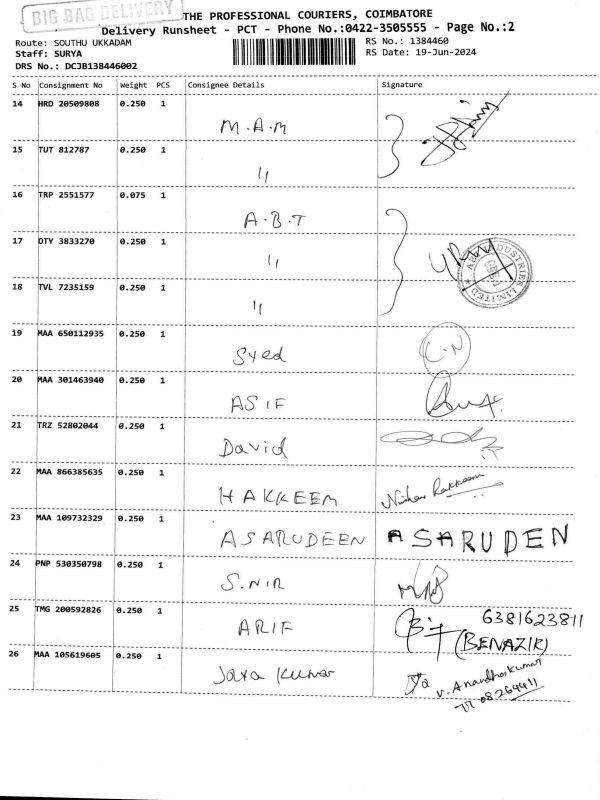 BIG BAG DELIVERY
THE PROFESSIONAL COURIERS, COIMBATORE
Delivery Runsheet - PCT - Phone No.:0422-3505555 - Page No.:2
Route: SOUTHU UKKADAM RS No.: 1384460
Staff: SURYA RS Date: 19-Jun-2024
DRS No.: DCJB138446002
S No Consignment No Weight PCS Consignee Details Signature
14 HRD 20509808 0.250 1 M.A.M
15 TUT 812787 0.250 1 "
16 TRP 2551577 0.075 1 A.B.T
17 OTY 3833270 0.250 1 "
18 TVL 7235159 0.250 1 "
19 MAA 650112935 0.250 1 Syed C.N
20 MAA 301463940 0.250 1 ASIF
21 TRZ 52802044 0.250 1 David
22 MAA 866385635 0.250 1 HAKKEEM
23 MAA 109732329 0.250 1 ASARUDEEN ASARUDEN
24 PNP 530350798 0.250 1 S.NIR
25 TMG 200592826 0.250 1 ARIF 6381623811
(BENAZIR)
26 MAA 105619605 0.250 1 Jaya Kumar
V. Anandha Kumar